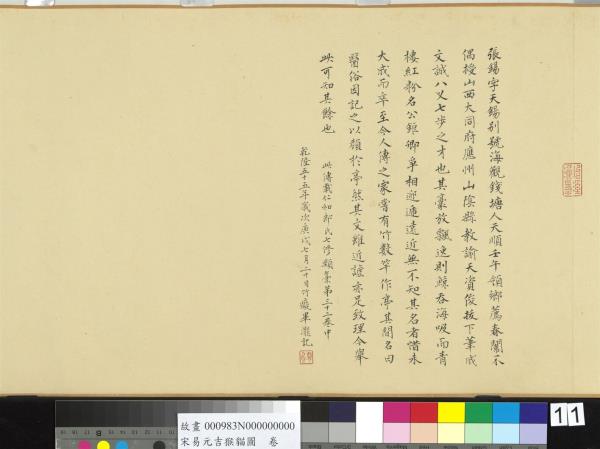 張錫字天錫別號海觀錢塘人天順壬午領鄉薦春闈不
偶授山西大同府應州山陰縣教諭天資俊拔下筆成
文誠八叉七步之才也其豪放飄逸則鯨吞海吸而青
樓紅粉名公鉅卿爭相迎遞遠近無不知其名者惜未
大成而卒至今人傳之家嘗有竹數竿作亭其間名曰
醫俗因記之以顏於亭然其文雖近謔亦足致理今舉
此可知其餘也
此傳載仁和郎氏七修類藁第三十二卷中
乾隆五十五年歲次庚戌七月二十日竹癡畢瀧記
11
故畫 000983N000000000
宋易元吉猴貓圖 卷